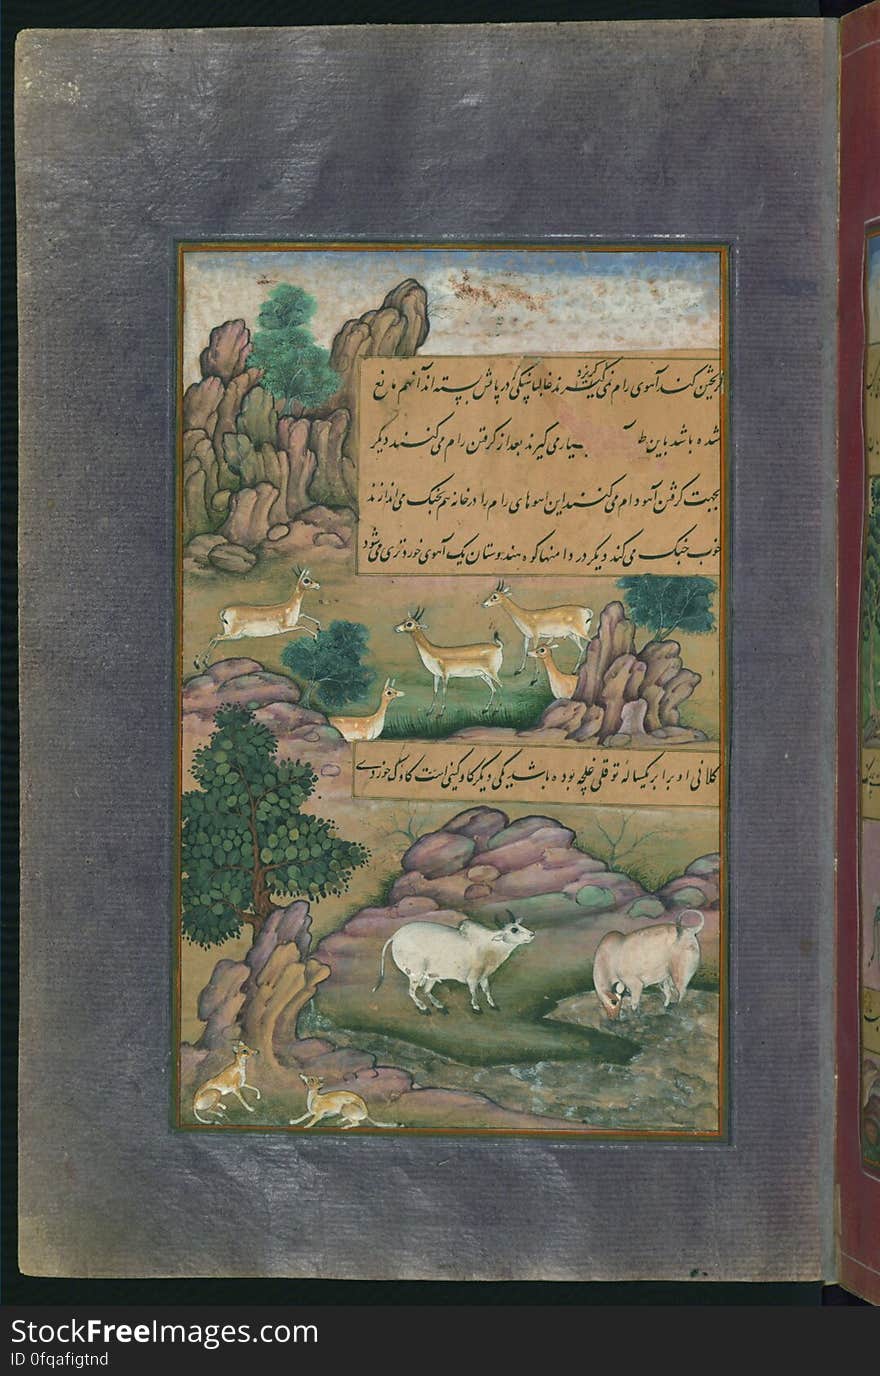 گریختن کند آهوی رام نمی‌گریزد غالبا سنگی در پاش بسته‌اند آنهم مانع
شده باشد باین ط سیار می‌گیرند بعد از گرفتن رام می‌کنند دیگر
بجهت گرفتن آهو دام می‌کنند این آهوهای رام را در خانه هم بجنگ می‌اندازند
خوب جنگ می‌کند دیگر در دامنهاکوه هندوستان یک آهوی خوردتری می‌شود
کلانی او برابر یکساله توقلی غلچه بوده باشد یکی دیگر کاو کینی است کاو خوردی
StockFreeImages.com
ID 0fqafigtnd